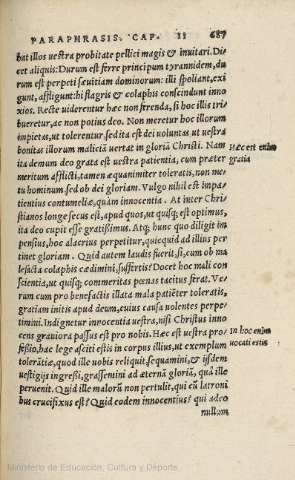 PARAPHRASIS. CAP. II 687
bat illos uestra probitate pellici magis & inuitari. Di
cet aliquis: Durum est ferre principum tyrannidem, du
rum est perpeti sæuitiam dominorum: illi spoliant, exi
gunt, affligunt: hi flagris & colaphis conscindunt inno
xios. Recte uiderentur hæc non ferenda, si hoc illis tri
bueretur, ac non potius deo. Non meretur hoc illorum
impietas, ut tolerentur, sed ita est dei uoluntas ut uestra
bonitas illorum maliciā uertat in gloriā Christi. Nam
Hæc est enim
ita demum deo grata est uestra patientia, cum præter
gratia
meritum afflicti, tamen æquanimiter toleratis, non me
tu hominum, sed ob dei gloriam. Vulgo nihil est impa-
tientius contumeliæ, quàm innocentia. At inter Chri-
stianos longe secus est, apud quos, ut quisq; est optimus,
ita deo cupit esse gratissimus. Atq; hunc quo diligit im
pensius, hoc alacrius perpetitur, quicquid ad illius per
tinet gloriam. Quid autem laudis fuerit, si, cum ob ma
lefacta colaphis cædimini, suffertis? Docet hoc mali con
scientia, ut quisq; commeritas pœnas tacitus ferat. Ve-
rum cum pro benefactis illata mala patiēter toleratis,
gratiam initis apud deum, cuius causa uolentes perpe-
timini. Indignetur innocentia uestra, nisi Christus inno
cens grauiora passus est pro nobis. Hæc est uestra pro/
In hoc enim
fessio, hac lege asciti estis in corpus illius, ut exemplum
uocati estis
toleratiæ, quod ille uobis reliquit, sequamini, & ijsdem
uestigijs ingressi, grassemini ad æternā gloriā, quā ille
peruenit. Quid ille malorū non pertulit, qui cū latroni
bus crucifixus est? Quid eodem innocentius? qui adeo
nullum
Ministerio de Educación, Cultura y Deporte